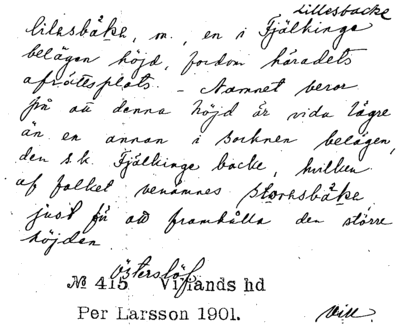 Lillesbacke
lilesbåke, m., en i Fjälkinge
belägen höjd, fordom häradets
afrättsplats. – Namnet beror
på att denna höjd är vida lägre
än en annan i socknen belägen,
den s.k. Fjälkinge backe, hvilken
af folket benämnes storesbåke,
just på att framhålla den större
höjden
Österslöf
№ 415 Villands hd
Per Larsson 1901.
Vill.